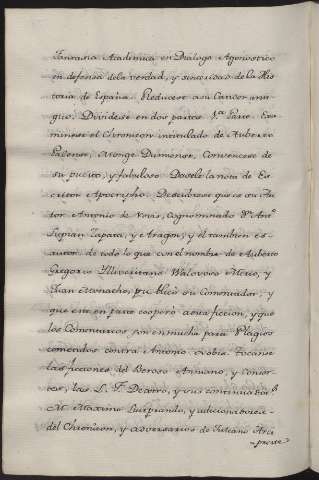 Fantasia Academica en Dialogo Agonostico
en defensa de la verdad, y sinceridad de la His
toria de España. Reducese a su Candor anti
guo. Dividese en dos partes. 1.ª Parte. Exa
minase el Chronicon intitulado de Auberto
Monge Dumiense, Convencese de
supuesto, y fabuloso Dasele la nota de Es
critor Apocripho. Descubrese que es su Au
tor Antonio de Nobis, Cognominado Dn. Antº
Lupian Zapata, y Aragon, y él tambien es
autor de todo lo que con el nombre de Auberto
Gregorio y
Juan publicó su Comentador, y
que en parte cooperó a esta ficcion, y que
los Comentarios son en mucha parte Plagios
comendos contra Antonio Nobis. Tocanse
las ficciones del Beroso Anniano, y consor
tes, las L. F. Dextro, y sus continuador.s
M. Maximo Luitprando, y adiciona
del Chronicon, y adversarios de Juliano Arci
-preste